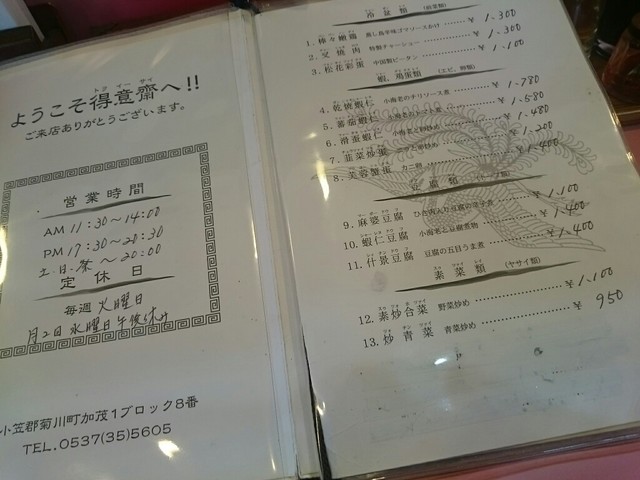 トクイーサイ
ようこそ得意齋へ!!
ご来店ありがとうございます。
営業時間
AM 11:30～14:00
PM 17:30～20:30
土.日.祭 ～20:00
定休日
毎週 火曜日
月2回 水曜日 午後休み
小笠郡菊川町加茂1ブロック8番
TEL.0537(35)5605
冷盆類 (前菜類)
1. 棒々鶏 蒸し鳥辛味ゴマソースかけ ……¥ 1.300
2. 叉焼肉 特製チャーシュー ……¥ 1.300
3. 松花彩蛋 中国製ピータン ……¥ 1.100
蝦、鶏蛋類 (エビ、卵類)
4. 乾焼蝦仁 小海老のチリソース煮 ……¥ 1.780
5. 蕃茄蝦仁 ……¥ 1.580
6. 滑蛋蝦仁 小海老と卵炒め ……¥ 1.480
7. 韮菜炒蛋 ニラと卵炒め ……¥ 1.200
8. 芙蓉蟹蛋 カニ卵 ……¥ 1.400
豆腐類 (トーフ類)
9. 麻婆豆腐 ひき肉入り豆腐の辛子煮 ……¥ 1.100
10. 蝦仁豆腐 小海老と豆腐煮物 ……¥ 1.400
11. 什景豆腐 豆腐の五目うま煮 ……¥ 1.400
素菜類 (ヤサイ類)
12. 素炒合菜 野菜炒め ……¥ 1.100
13. 炒青菜 青菜炒め ……¥ 950